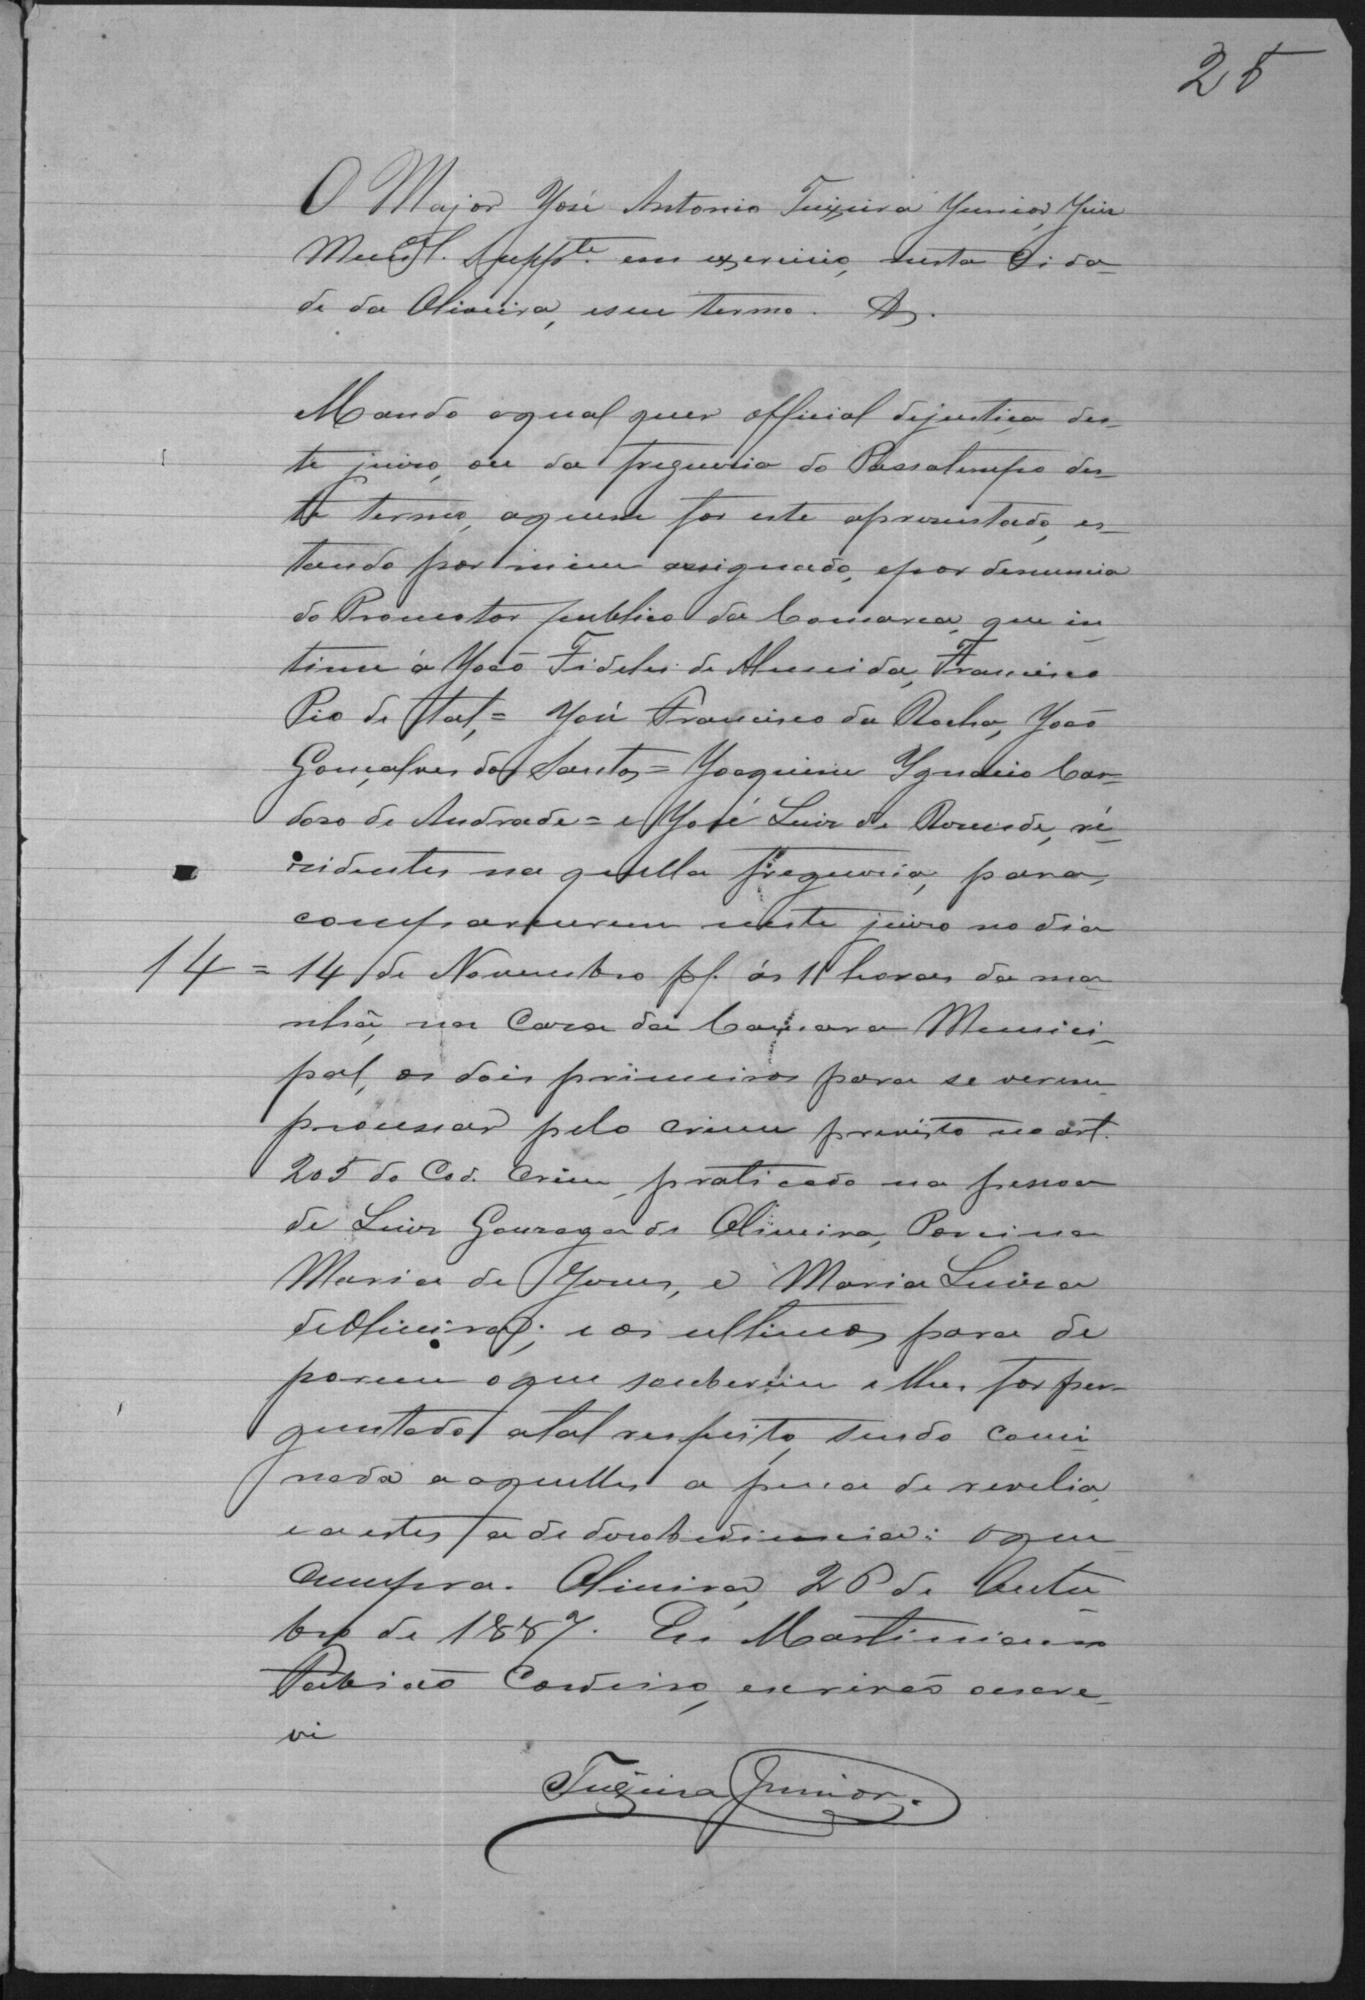 25
O Major José Antonio Teixeira Junior, Juiz
Munal. Suppte. em exercicio, nesta Cida-
de da Oliveira, e seu termo. &.
Mando a qual quer official dejustiça des-
te juizo, ou da freguezia do Passatempo des-
te termo, aquem for este apresentado, es-
tando por mim assignado, epor denuncia
do Promotor publico da Comarca, que in-
time á João Fideles de Almeida, Francisco
Pio de tal, = José Francisco da Rocha, João
Gonçalves dos Santos = Joaquim Ignacio Car-
doso de Andrade = e José Luiz de Rezende, re-
zidentes na quella freguezia, para,
comparecerem neste juizo no dia
14 = 14 de Novembro pf. ás 11 horas da ma-
nhã, na Caza da Camara Munici-
pal, os dois primeiros para se verem
processar pelo crime previsto no art.
205 do Cod. Crim, praticado na pessoa
de Luiz Gonzaga de Oliveira, Porcina
Maria de Jesus, e Maria Luiza
deOliveira; e os ultimos para de
porem oque souberem e lhes for per-
guntado atal respeito, sendo comi-
nada a aquelles a pena de revelia,
e a estes a de desobediencia: oque
cumpra. Oliveira, 26 de Outu-
bro de 1887. Eu Martiniano
Cordeiro, escrivão oescre-
vi
Teixeira Junior.